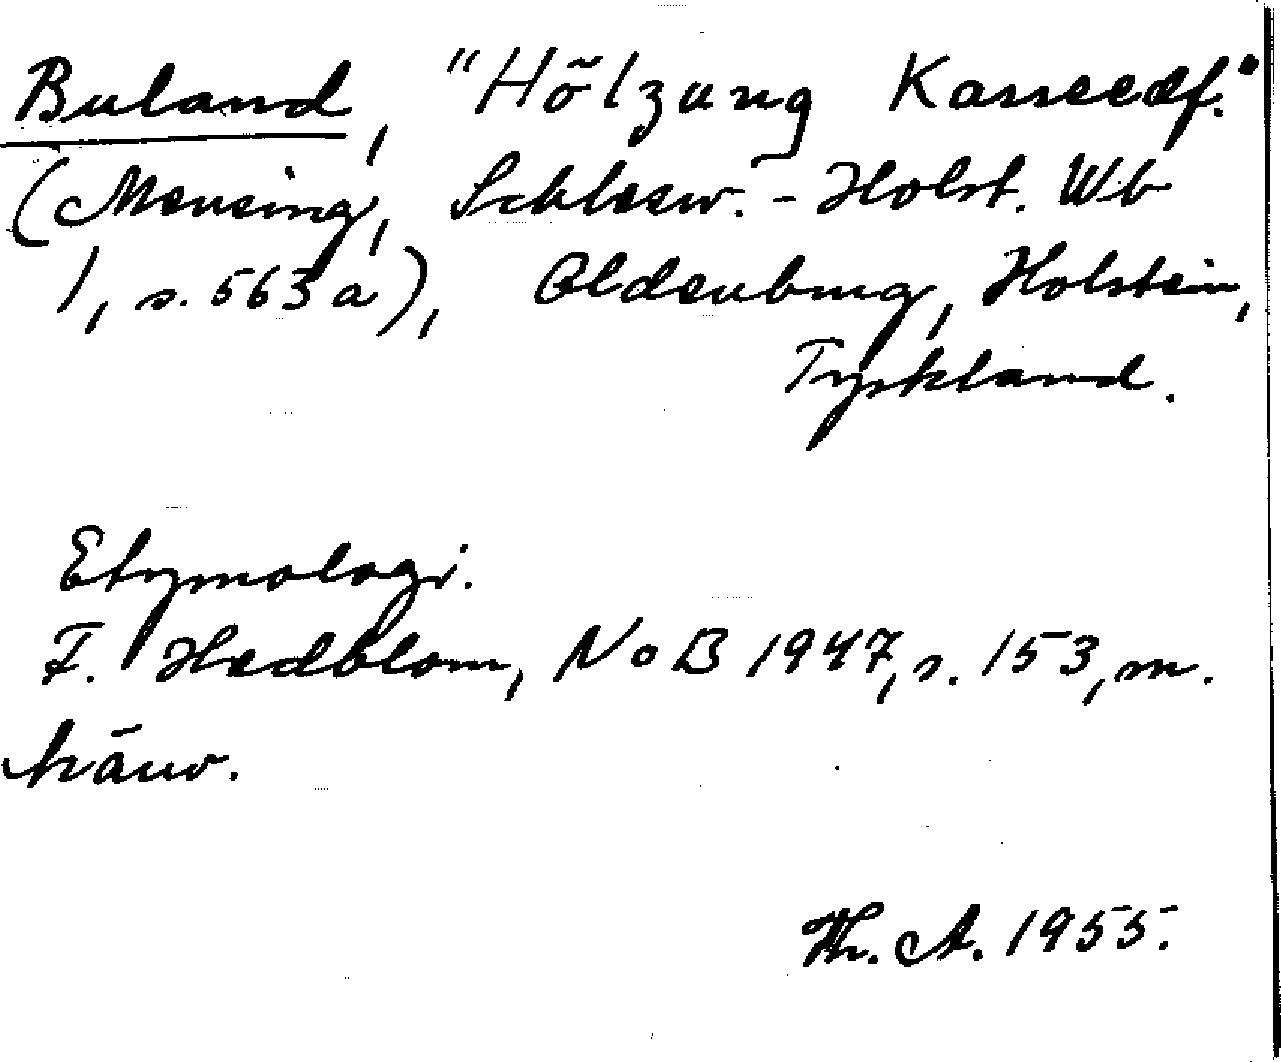 Buland, "Hölzung Kasseedf."
(Mensing, Schlesw.-Holst. Wb
1, s. 563 a), Oldenburg, Holstein,
Tyskland.
Etymologi.
F. Hedblom, NoB 1947, s. 153, m.
hänv.
Th. A. 1955.